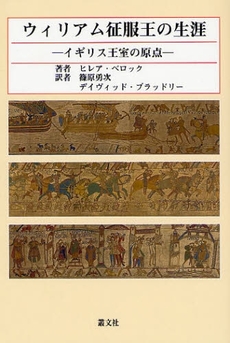 ウィリアム征服王の生涯
―イギリス王室の原点―
著者 ヒレア・ベロック
訳者 篠原勇次
デイヴィッド・ブラッドリー
叢文社